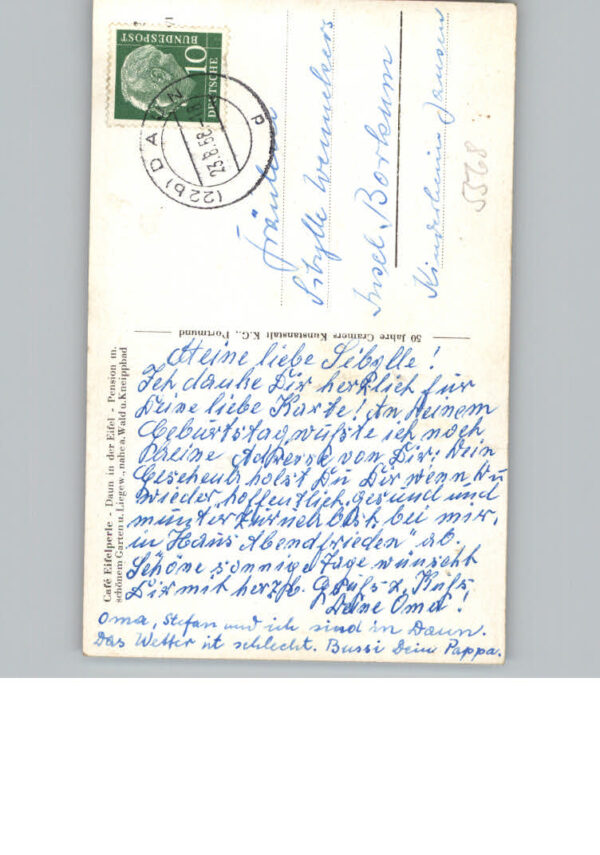 DEUTSCHE
BUNDESPOST
10
(22b) DAUN
23.8.58
d
Fräulein
Sibylle
Insel Borkum
Kinderheim Jansen
5568
50 Jahre Cramers Kunstanstalt K.G., Dortmund
Café Eifelperle - Daun in der Eifel - Pension m.
schönem Garten u. Liegew., nahe a. Wald u. Kneippbad
Meine liebe Sibylle!
Ich danke Dir herzlich für
Deine liebe Karte! An Deinem
Geburtstag wußte ich noch
keine Adresse von Dir. Dein
Geschenk holst Du Dir wenn Du
wieder, hoffentlich gesund und
munter zurück bist, bei mir,
in Haus „Abendfrieden" ab.
Schöne sonnige Tage wünscht
Dir mit herzl. Gruß u. Kuß
Deine Oma!
Oma, Stefan und ich sind in Daun.
Das Wetter ist schlecht. Bussi Dein Pappa.